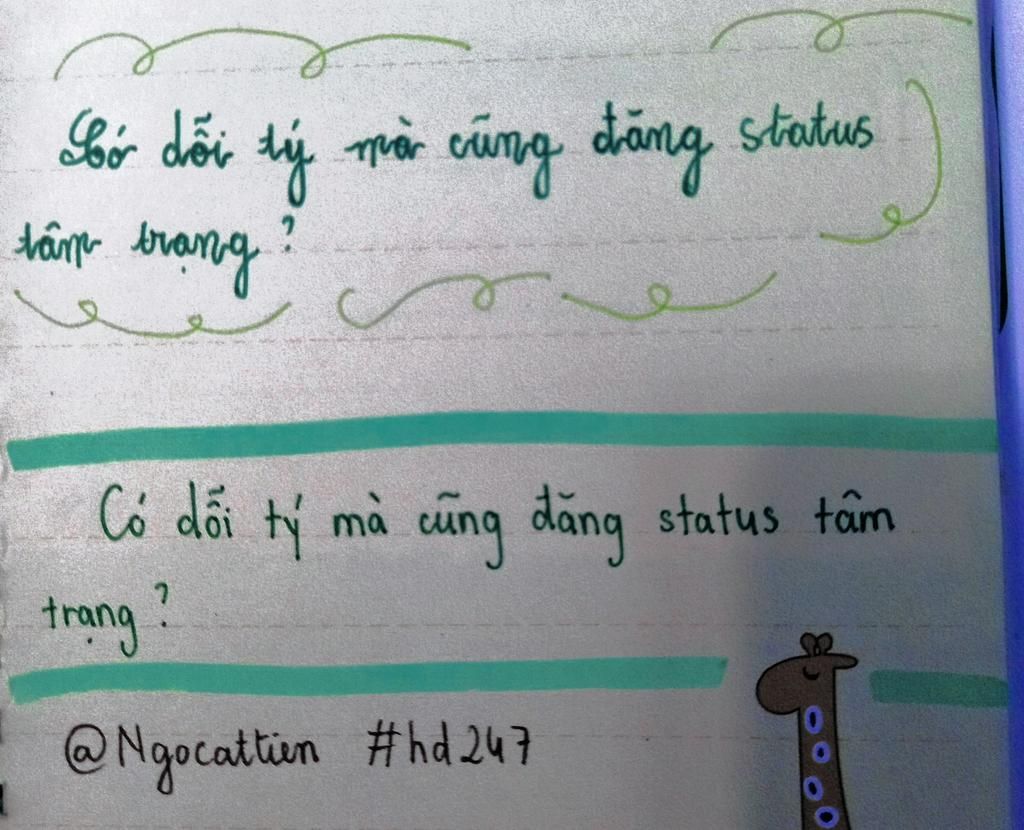 Có dỗi tý mà cũng đăng status
tâm trạng?
Có dỗi tý mà cũng đăng status tâm
trạng?
@Ngocattien #hd247